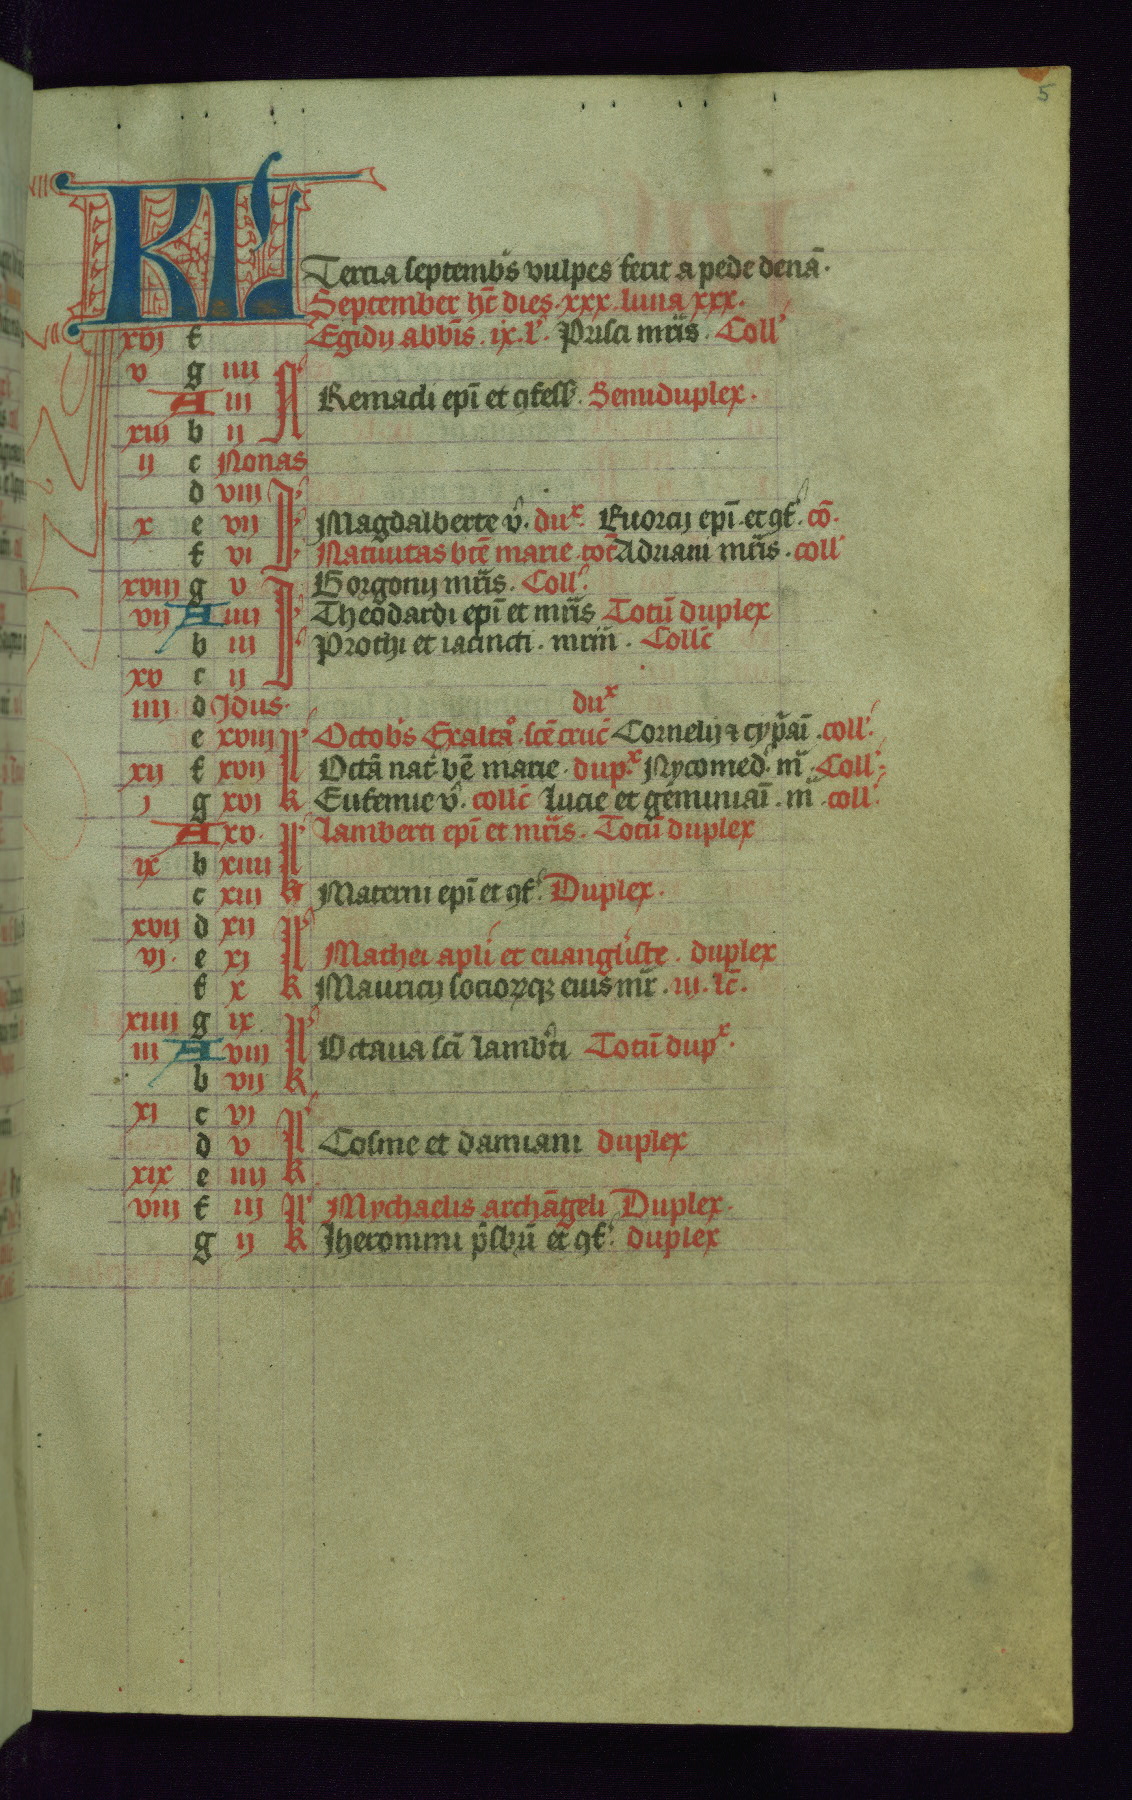 5
KL
Tercia septembͬs vulpes ferit a pede denā.
September hꝫ dies. xxx. luna xxx.
xvj f Egidij abbīs. ix. l'. Prisci mr̄is. Coll'
v g iiii N
A iii Remacli epī et ꝯfess'. Semiduplex.
xiii b ij
ij c Nonas
d viii Jd'
x e vij Magdalberte v'. duˣ. Euorcij epī. et ꝯf'. cō.
f vi Natiuitas btē marie. tot̄ Adriani mr̄is. coll'
xviii g v Gorgonij mr̄is. Coll'.
vij A iiii Theodardi epī et mr̄is Totū duplex
b iii Prothi et iacincti. mr̄m. Collc̄
xv c ij
iiij. d Jdus. duˣ
e xviii Octobͬs Exaltaͦ. scē cruc̄ Cornelij ⁊ cyp̄ai̅. coll'.
xij f xvij Octā nat̄ bē marie. dup.ˣ Nycomed'. m̄. Coll'.
j g xvj K Eufemie v'. collc̄ Lucie et geminiāi. m̄. coll'.
A xv. Lamberti epī et mr̄is. Totū duplex
ix b xiiii
c xiii K Materni epī et ꝯf'. Duplex.
xvij d xij
vj. e xj Mathei apl'i et euangl'iste. duplex
f x K Mauricij socioꝝqꝫ eius mr̄. iij. lc̄.
xiiii g ix
iii A viii Octaua scī Lamb'ti Totū dupˣ.
b vij K
xj c vj
d v Cosme et damiani duplex
xix e iiij K
viii f iij Mychaelis archāgeli Duplex.
g ij K Jheronimi p̄sbrī et ꝯf'. duplex